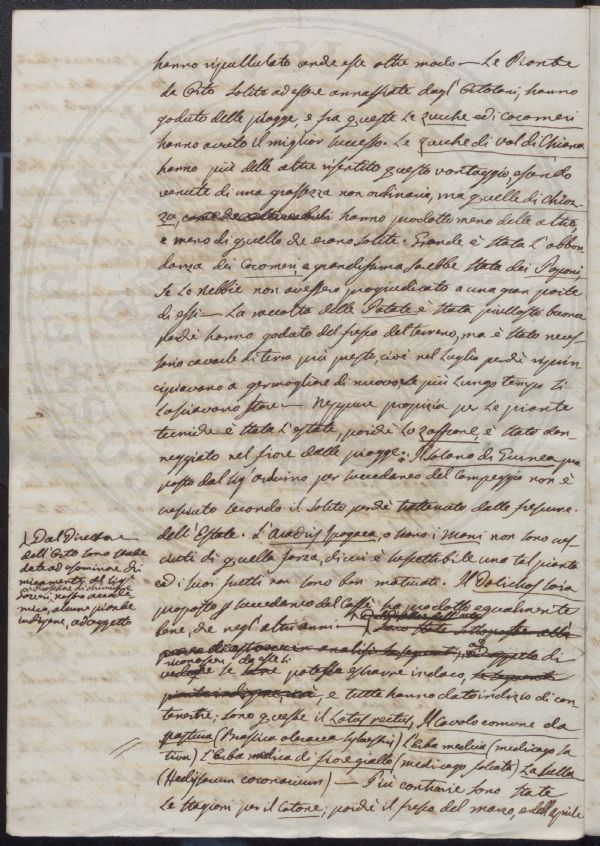 hanno ripullulato anche esse oltre modo — Le Piante
da Orto solite ad essere annaffiate dagl'Ortolani, hanno
goduto delle piogge, e fra queste Le zucche ed i cocomeri
hanno avuto il miglior successo. Le zucche di val di Chiana
hanno più delle altre risentito questo vantaggio, essendo
venute di una grossezza non ordinaria, ma quelle di Chiog-
gia, hanno prodotto meno delle altre,
e meno di quello che erano solite. Grande è stata L'abbon
danza dei Cocomeri e grandissima sarebbe stata dei Poponi,
se Le Nebbie non avessero pregiudicato a una gran parte
di essi — La raccolta delle Patate è stata piuttosto buona
perchè hanno goduto del fresco del terreno, ma è stato neces
sario cavarle di terra più presto, cioè nel Luglio perchè rippin
cipiavano a germogliare di nuovo, se più Lungo tempo si
Lasciavano stare — Neppure propizia per Le piante
tecniche è stata L'estate, poichè Lo zaffrone, è stato dan
neggiato nel fiore dalle piogge. Il Solano di Guinea pro
posto dal Sig. Arduino per succedaneo del Campeggio non è
cresciuto secondo il solito perchè trattenuto dalle frescure
dell'Estate. L'Arachis Ipogaea, o siano i Mani non sono cres
ciuti di quella forza, di cui è suscettibile una tal pianta
ed i suoi frutti non sono ben maturati. Il Dolichos soia
proposto p succedaneo del Caffè ha prodotto egualmente
bene, che negl'altri anni —
Dal Direttore
dell'Orto sono state
date ad esaminare chi
micamente al Sig.
professore di chimica
nostro accade
mico, alcune piante
indigene, ad oggetto
sono state sottoposte alla
prova di analisi le seguenti ad oggetto di
se potesse estrarne indaco,
e tutte hanno dato indizio di con
tenerne; sono queste il Lotus rectus, Il Cavolo comune da
pastura (Brassica oleracea sylvestris) L'Erba medica (medicago sa
tiva) L'Erba medica di fiore giallo (medicago falcata) La Sulla
(Hedysarum coronarium) — Più contrarie sono state
Le stagioni per il Cotone; poichè il fresco del marzo, e dell'aprile